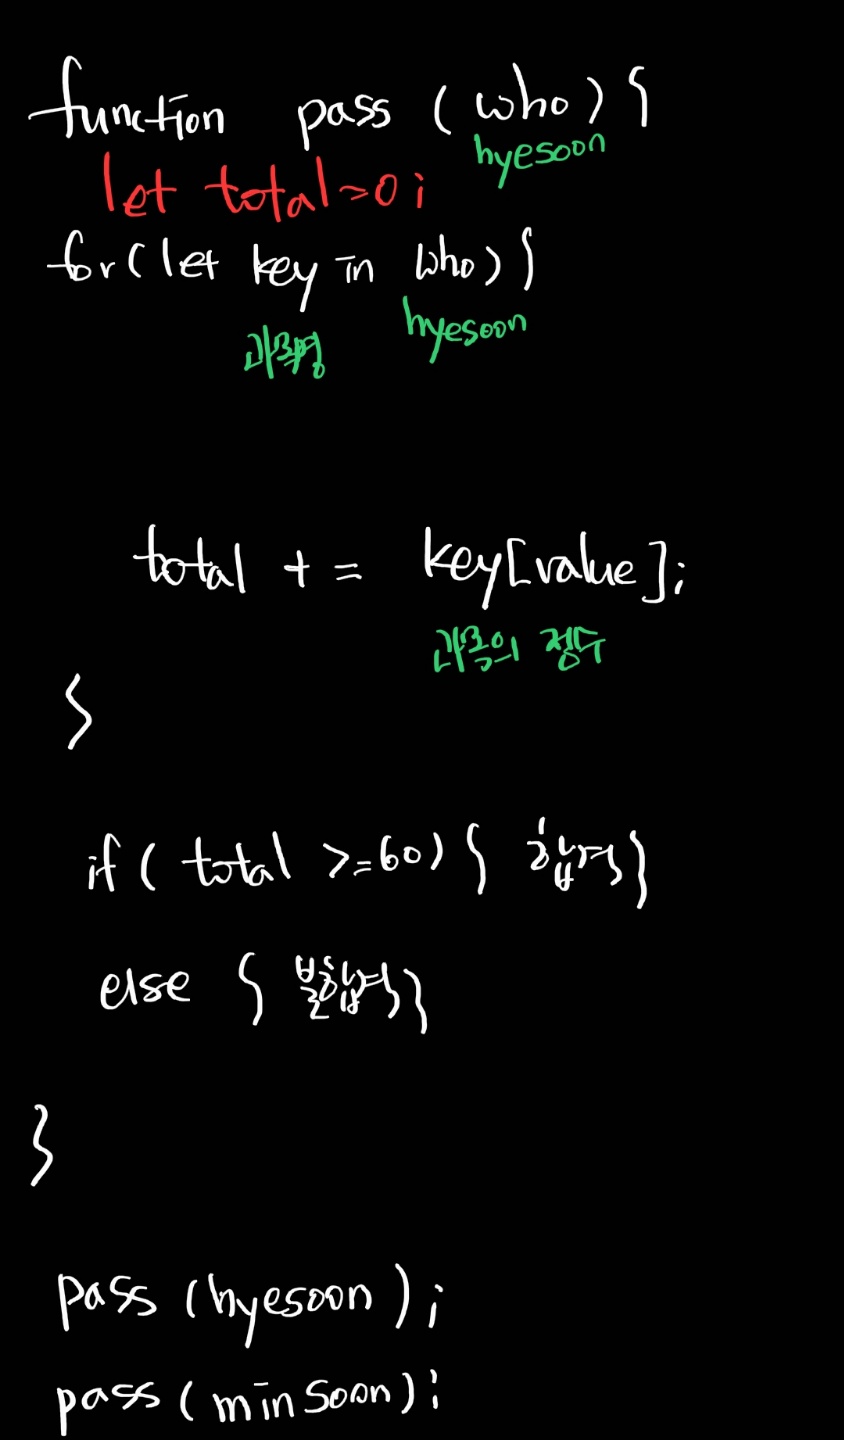 function pass (who) {
hyesoon
let total=0;
for(let key in who){
과목명 hyesoon
total += key[value];
과목의 점수
}
if( total >=60) { 합격}
else { 불합격}
}
pass (hyesoon);
pass (minsoon);